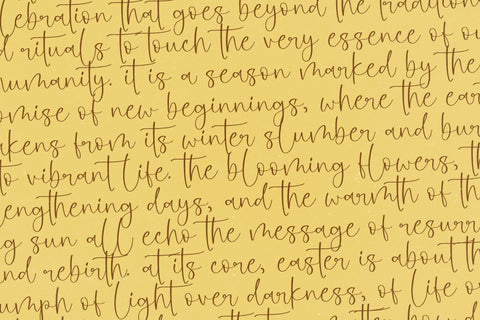 lebration that goes beyond the tradition
d rituals to touch the very essence of ou
humanity. it is a season marked by the
omise of new beginnings, where the ear
akens from its winter slumber and bur
to vibrant life. the blooming flowers, th
engthening days, and the warmth of th
g sun all echo the message of resurr
nd rebirth. at its core, easter is about th
umph of light over darkness, of life o